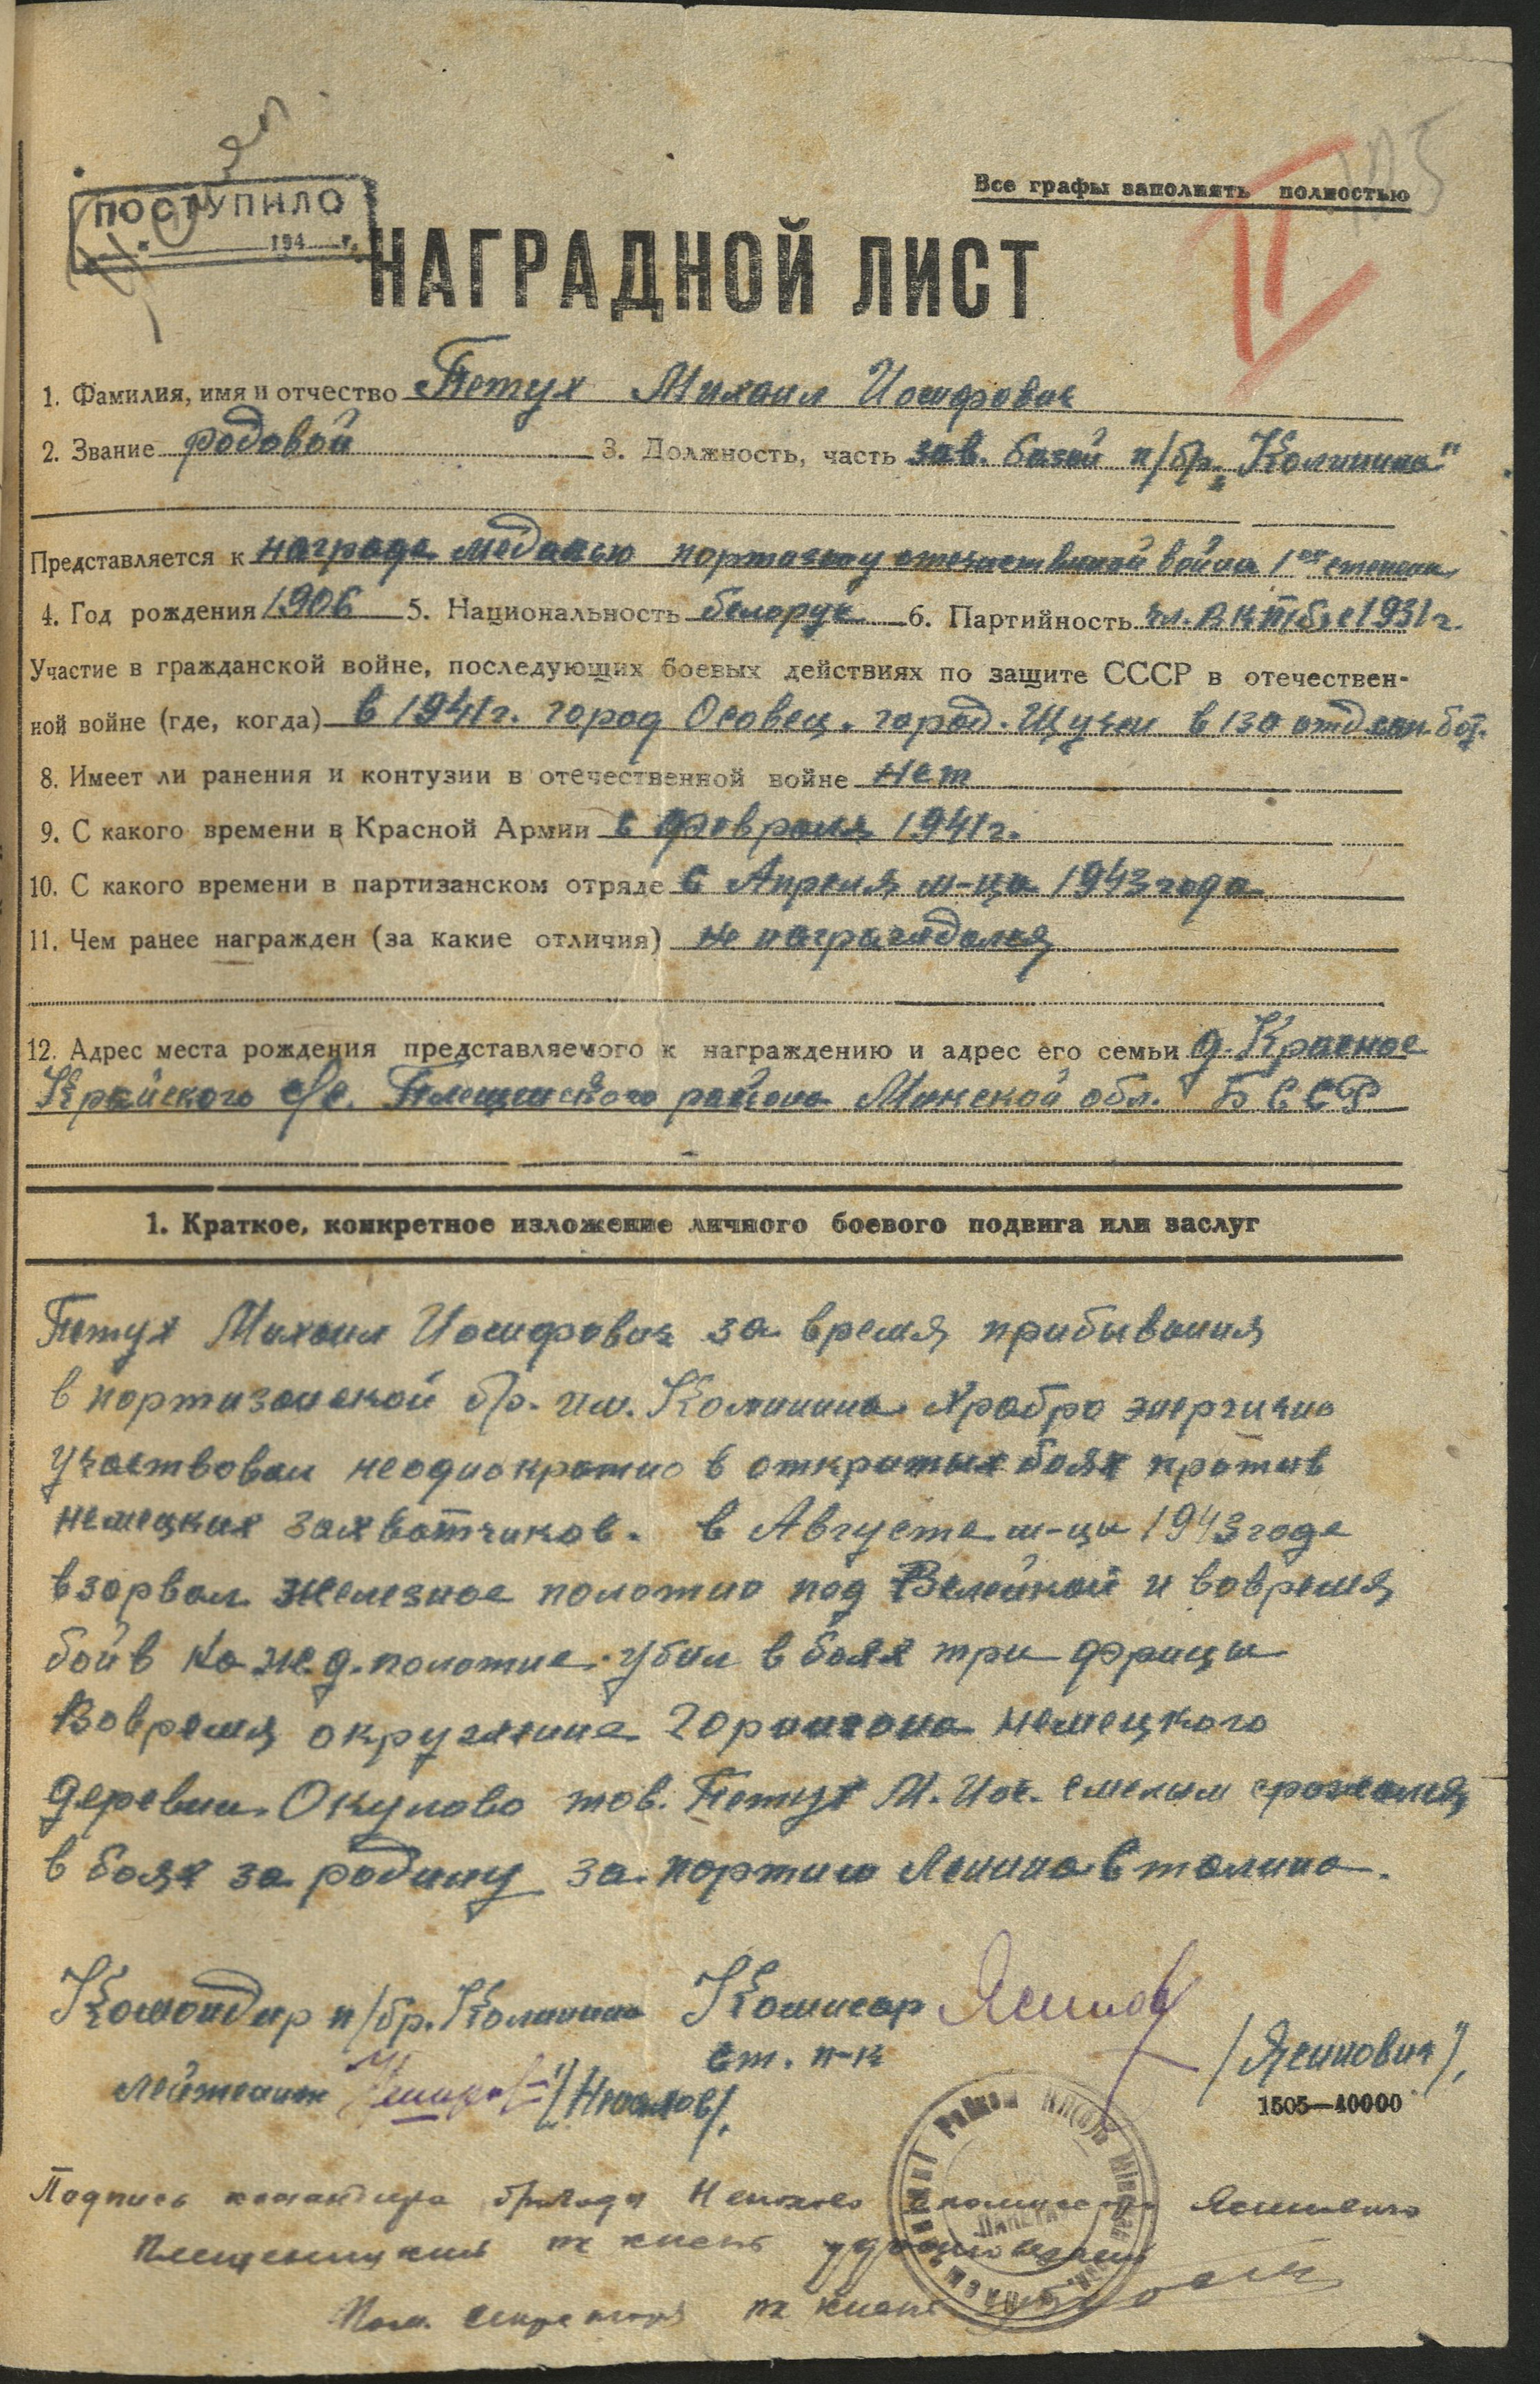 105
Все графы заполнять полностью
ПОСТУПИЛО
" 194 г.
II
НАГРАДНОЙ ЛИСТ
1. Фамилия, имя и отчество Петух Михаил Иосифович
2. Звание рядовой 3. Должность, часть зав. базой п/бр. „Калинина"
Представляется к награде медалью партизану отечественной войны 1ой степени
4. Год рождения 1906 5. Национальность белорус 6. Партийность чл. ВКП/б/ с 1931 г.
Участие в гражданской войне, последующих боевых действиях по защите СССР в отечествен-
ной войне (где, когда) в 1941 г. город Осовец. город. Щучен в 130 отд. бат.
8. Имеет ли ранения и контузии в отечественной войне нет
9. С какого времени в Красной Армии с февраля 1941 г.
10. С какого времени в партизанском отряде с Апреля м-ца 1943 года
11. Чем ранее награжден (за какие отличия) не награждался
12. Адрес места рождения представляемого к награждению и адрес его семьи д. Красное
Крайского с/с. Плещенского района Минской обл. БССР
1. Краткое, конкретное изложение личного боевого подвига или заслуг
Петух Михаил Иосифович за время прибывания
в партизанской бр. им. Калинина храбро энергично
участвовал неоднократно в открытых боях против
немецких захватчиков. в Августе м-цы 1943 года
взорвал железное полотно под Вилейкой и вовремя
боив на ж.д. полотне. убил в боях три фрица
Вовремя окружение горнизона немецкого
деревни. Окулово тов. Петух М. Иос. смелым сражался
в боях за родину за партию Ленина Сталина.
Командир п/бр. Калинина Комисар
лейтенант /Неахов/. ст. п-к /Ясинович/.
1505—40000
Подпись командира бригады и комиссара
Плещеницкий удостоверяет
Пом. Секретаря